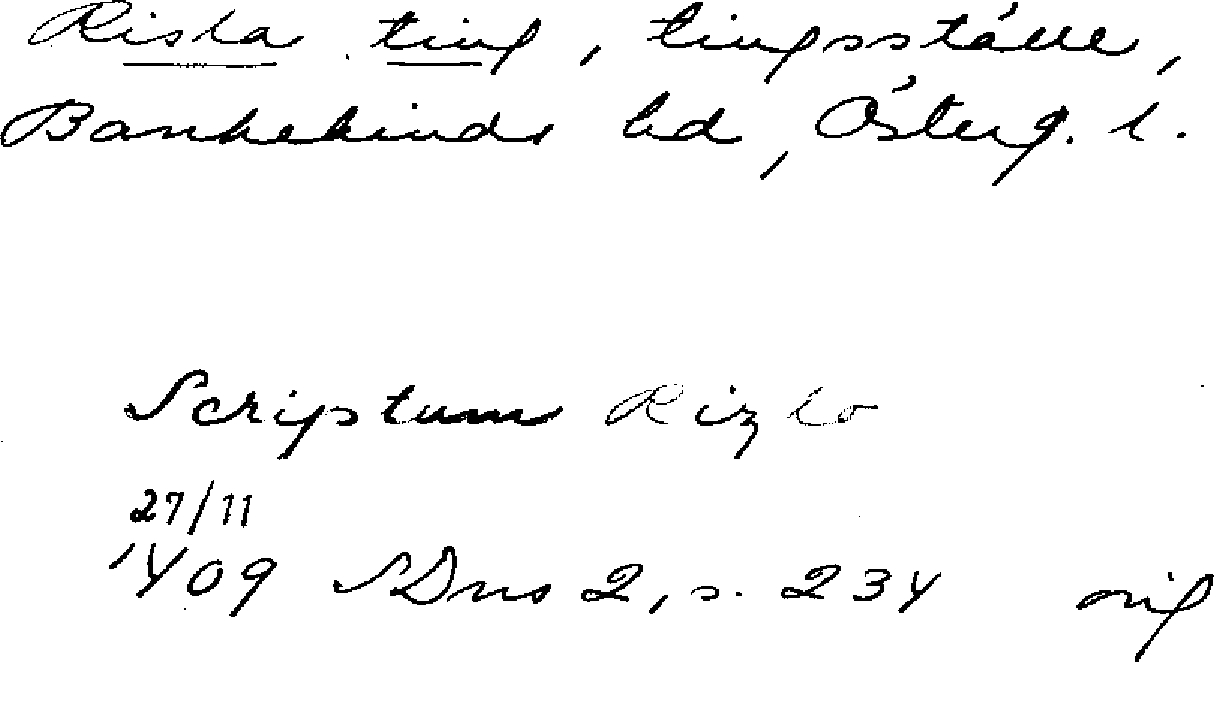 Risla ting, tingsställe,
Bankekinds hd, Österg. l.
Scriptum Rizlo
27/11
1409 SDns 2, s. 234 orig